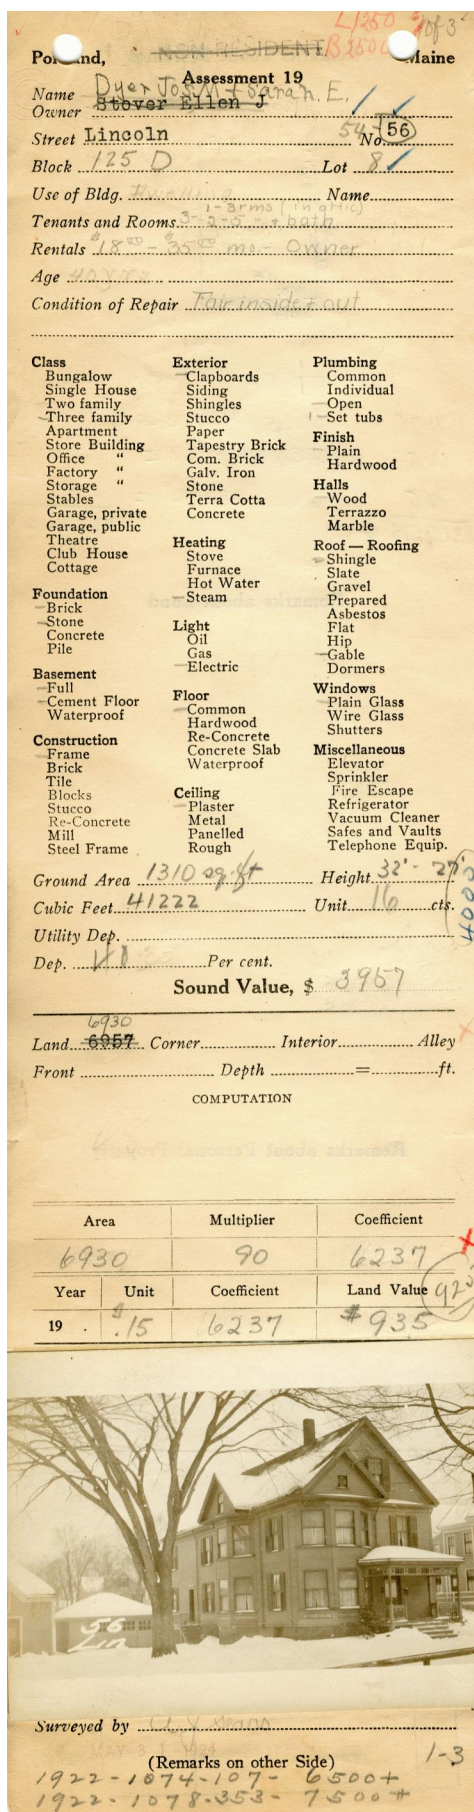 L1250 1 of 3
NON-RESIDENT. B2500
Portland, Maine
Assessment 19
Name Dyer Jos M + Sarah. E.
Owner Stover Ellen J
Street Lincoln No. 54-56
Block 125 D Lot 8
Use of Bldg. Dwelling Name
1-3rms (in attic)
Tenants and Rooms 3-2-5- + bath
Rentals $18.00 - $35.00 mo.- Owner
Age 40 yrs
Condition of Repair Fair inside + out
Class
Bungalow
Single House
Two family
Three family
Apartment
Store Building
Office "
Factory "
Storage "
Stables
Garage, private
Garage, public
Theatre
Club House
Cottage
Foundation
Brick
Stone
Concrete
Pile
Basement
Full
Cement Floor
Waterproof
Construction
Frame
Brick
Tile
Blocks
Stucco
Re-Concrete
Mill
Steel Frame
Exterior
Clapboards
Siding
Shingles
Stucco
Paper
Tapestry Brick
Com. Brick
Galv. Iron
Stone
Terra Cotta
Concrete
Heating
Stove
Furnace
Hot Water
Steam
Light
Oil
Gas
Electric
Floor
Common
Hardwood
Re-Concrete
Concrete Slab
Waterproof
Ceiling
Plaster
Metal
Panelled
Rough
Plumbing
Common
Individual
Open
1 Set tubs
Finish
Plain
Hardwood
Halls
Wood
Terrazzo
Marble
Roof — Roofing
Shingle
Slate
Gravel
Prepared
Asbestos
Flat
Hip
Gable
Dormers
Windows
Plain Glass
Wire Glass
Shutters
Miscellaneous
Elevator
Sprinkler
Fire Escape
Refrigerator
Vacuum Cleaner
Safes and Vaults
Telephone Equip.
Ground Area 1310 sq. ft Height 32'- 27'
Cubic Feet 41222 Unit 16 cts.
4000
Utility Dep.
Dep. Per cent.
Sound Value, $ 3957
6930
Land 6957 Corner Interior Alley
Front Depth = ft.
COMPUTATION
Area Multiplier Coefficient
6930 90 6237
Year Unit Coefficient Land Value 925
19 . $.15 6237 $935
56
Lin
Surveyed by
(Remarks on other Side) 1-3
1922-1074-107- 6500+
1922-1078-353- 7500+